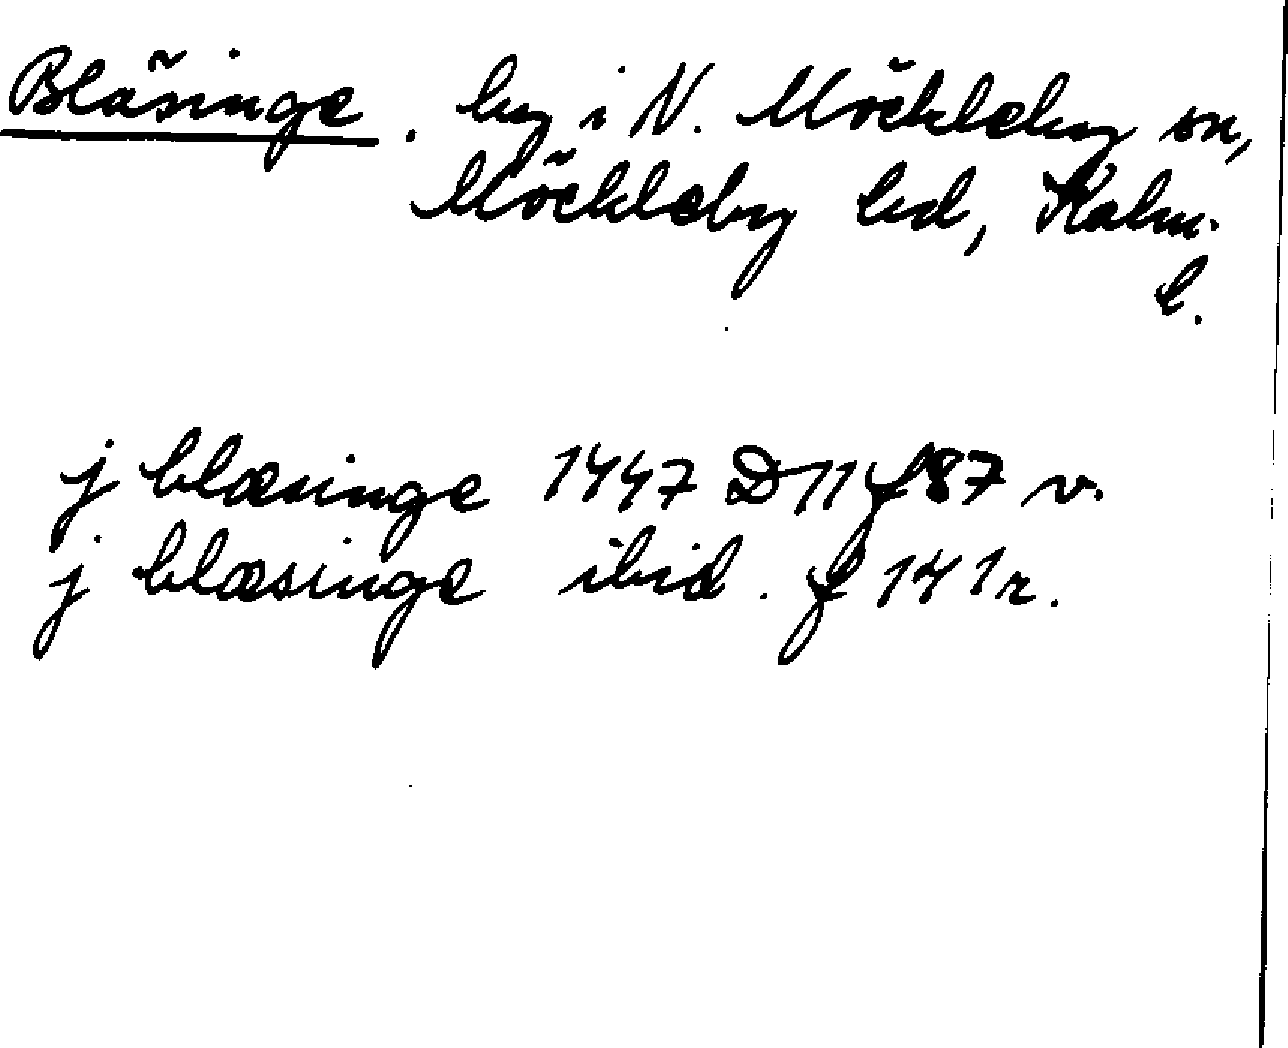 Bläsinge. by i N. Möckleby sn,
Möckleby hd, Kalm.
l.
j blæsinge 1447 D11 f 87 v.
j blæsinge ibid. f 141 r.